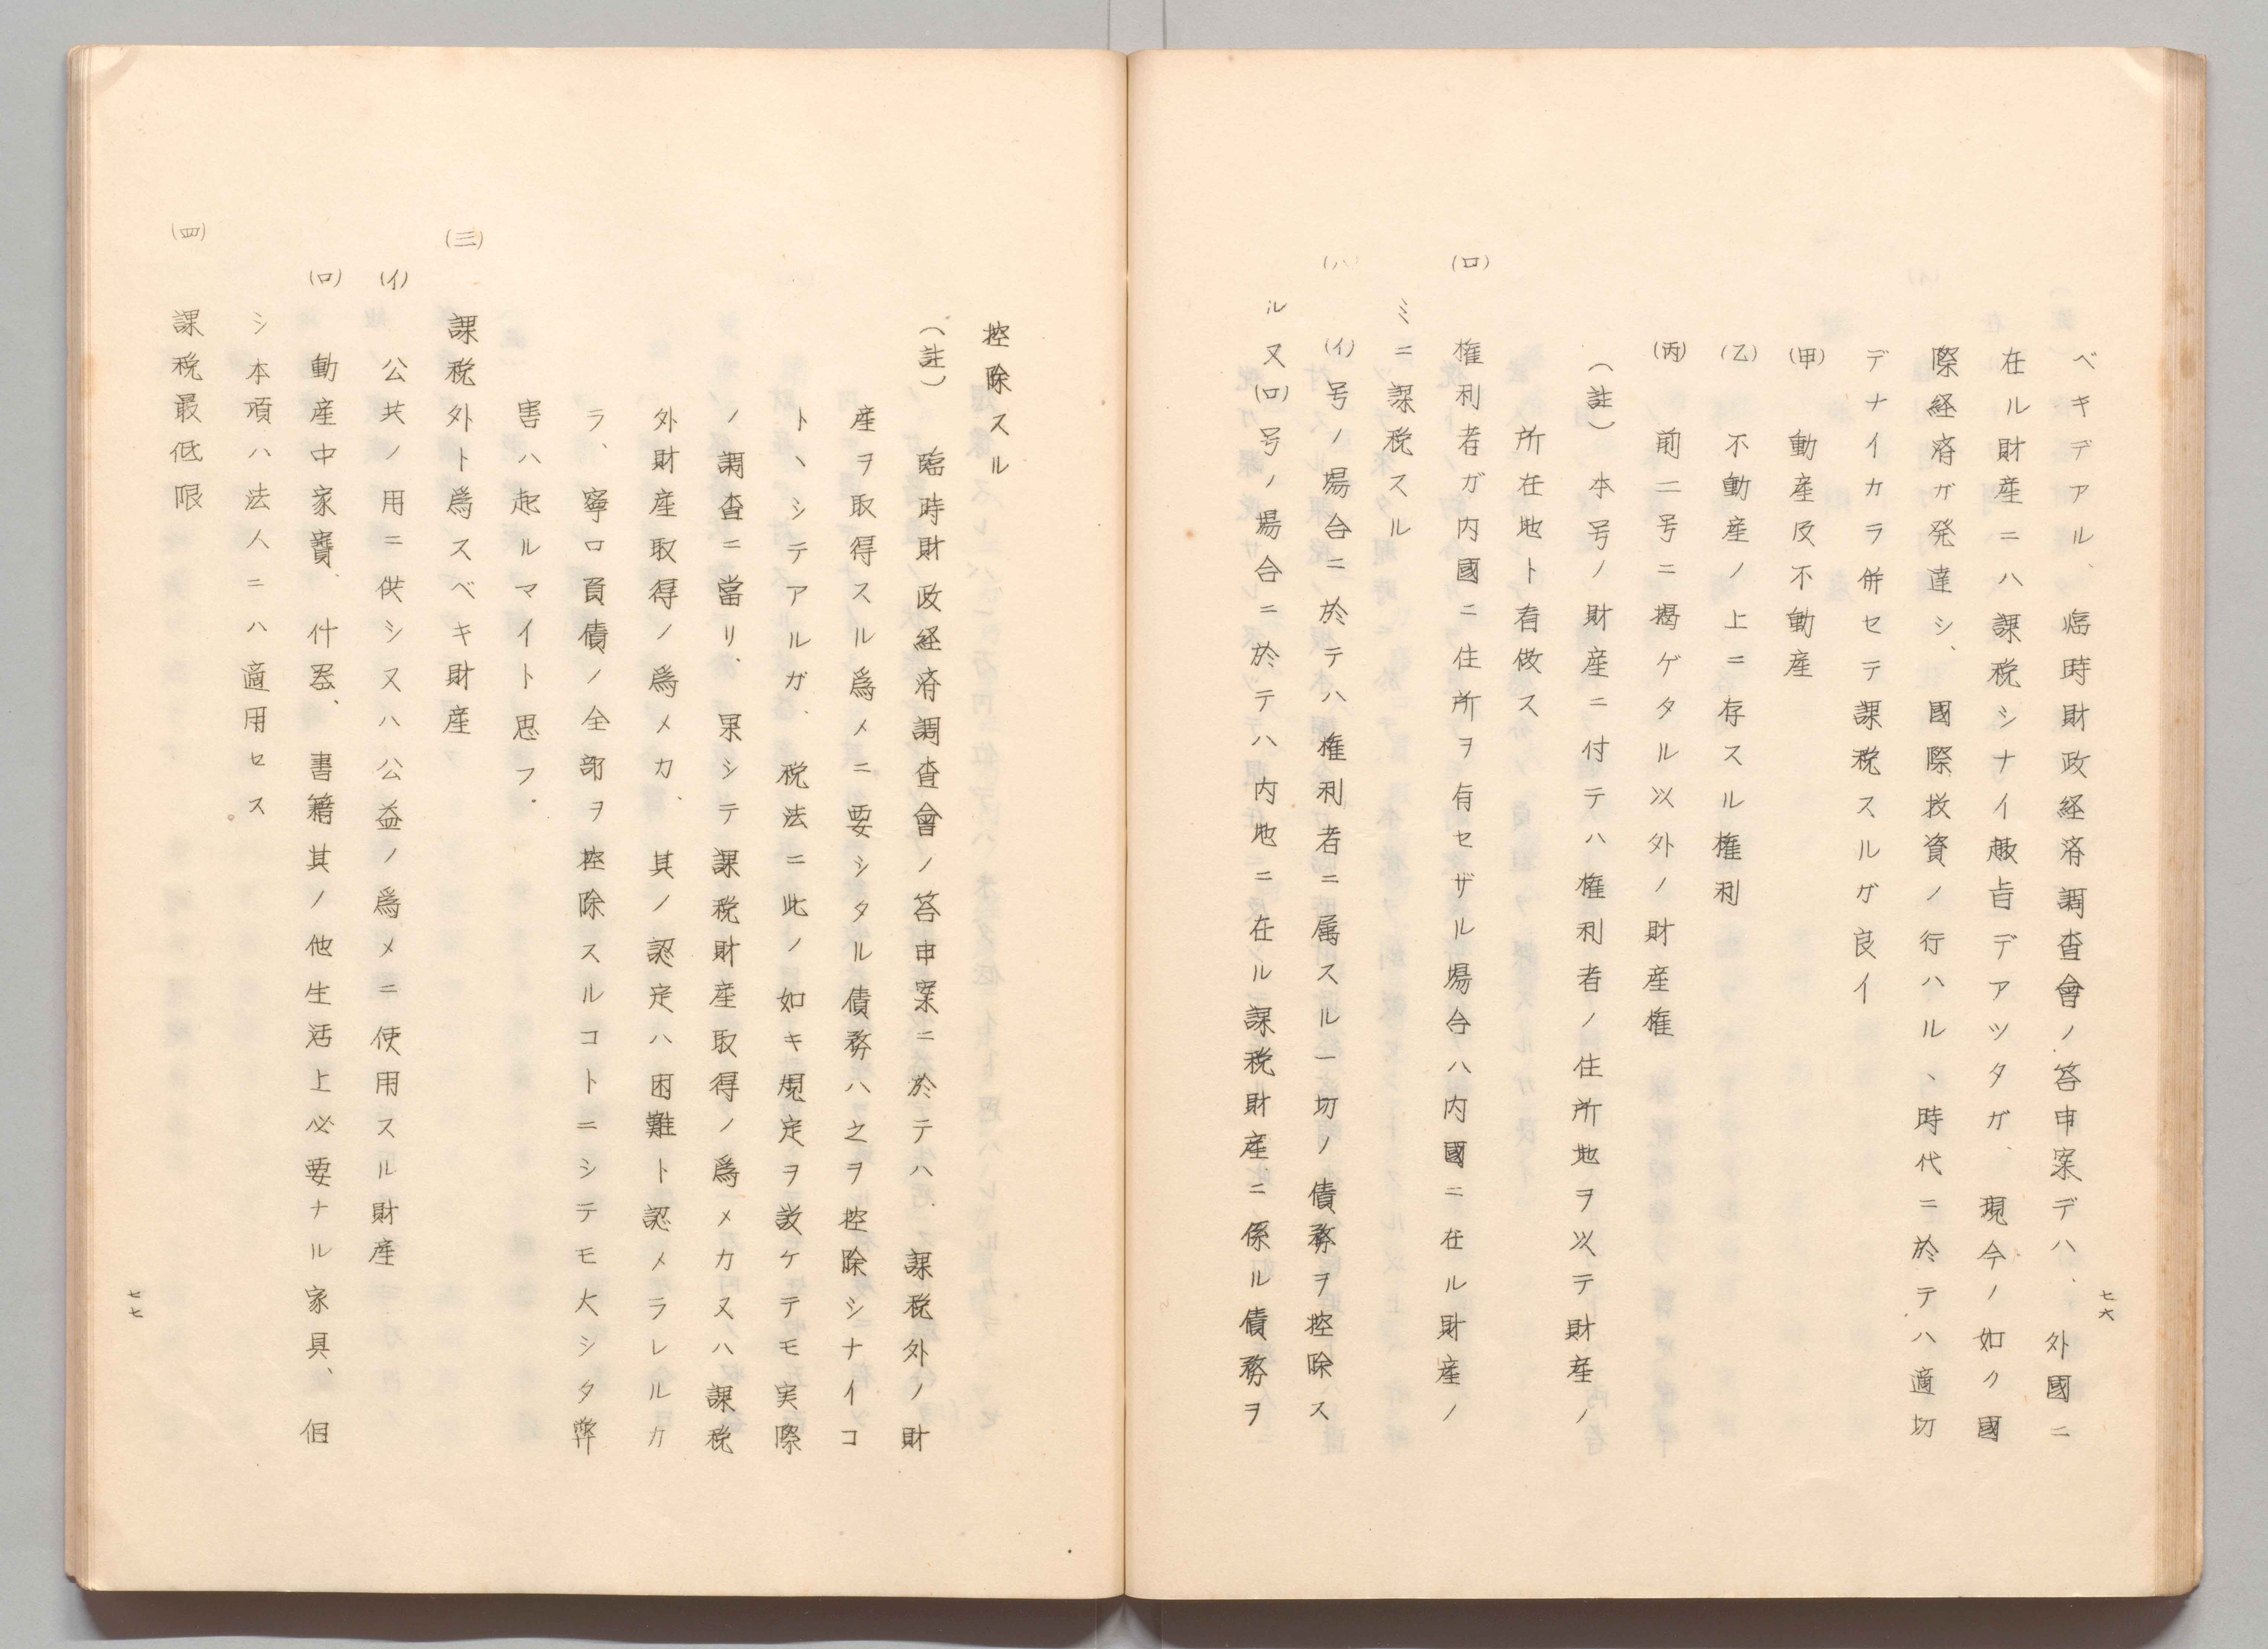 ベキデアル、臨時財政経済調査會ノ答申案デハ、外國ニ
在ル財産ニハ課税シナイ趣旨デアツタガ、現今ノ如ク國
際経済ガ発達シ、國際投資ノ行ハルヽ時代ニ於テハ適切
デナイカラ併セテ課税スルガ良イ
(甲) 動産及不動産
(乙) 不動産ノ上ニ存スル権利
(丙) 前二号ニ揭ゲタル以外ノ財産権
(註) 本号ノ財産ニ付テハ権利者ノ住所地ヲ以テ財産ノ
所在地ト看做ス
(ロ) 権利者ガ内國ニ住所ヲ有セザル場合ハ内國ニ在ル財産ノ
ミニ課税スル
(ハ) (イ)号ノ場合ニ於テハ権利者ニ属スル一切ノ債務ヲ控除ス
ル又(ロ)号ノ場合ニ於テハ内地ニ在ル課税財産ニ係ル債務ヲ
七六
控除スル
(註) 臨時財政経済調査會ノ答申案ニ於テハ、課税外ノ財
産ヲ取得スル爲メニ要シタル債務ハ之ヲ控除シナイコ
トヽシテアルガ、税法ニ此ノ如キ規定ヲ設ケテモ実際
ノ調査ニ當リ、果シテ課税財産取得ノ爲メカ又ハ課税
外財産取得ノ爲メカ、其ノ認定ハ困難ト認メラレルカ
ラ、寧ロ負債ノ全部ヲ控除スルコトニシテモ大シタ弊
害ハ起ルマイト思フ.
(三) 課税外ト爲スベキ財産
(イ) 公共ノ用ニ供シ又ハ公益ノ爲メニ使用スル財産
(ロ) 動産中家寶、什器、書籍其ノ他生活上必要ナル家具、但
シ本項ハ法人ニハ適用セス。
(四) 課税最低限
七七